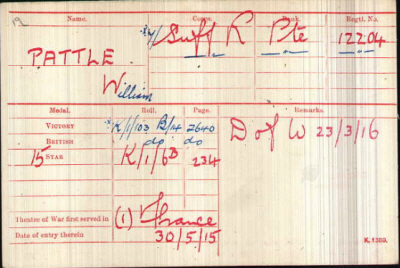 Name. Corps. Rank. Regtl. No.
PATTLE. 7/Suff R Pte 12204
William
Medal. Roll. Page. Remarks.
VICTORY K/1/103 B/14 2640 D of W 23/3/16
BRITISH do do
15 STAR K/1/6B 234
Theatre of War first served in (1) France
Date of entry therein 30/5/15
K. 1380.